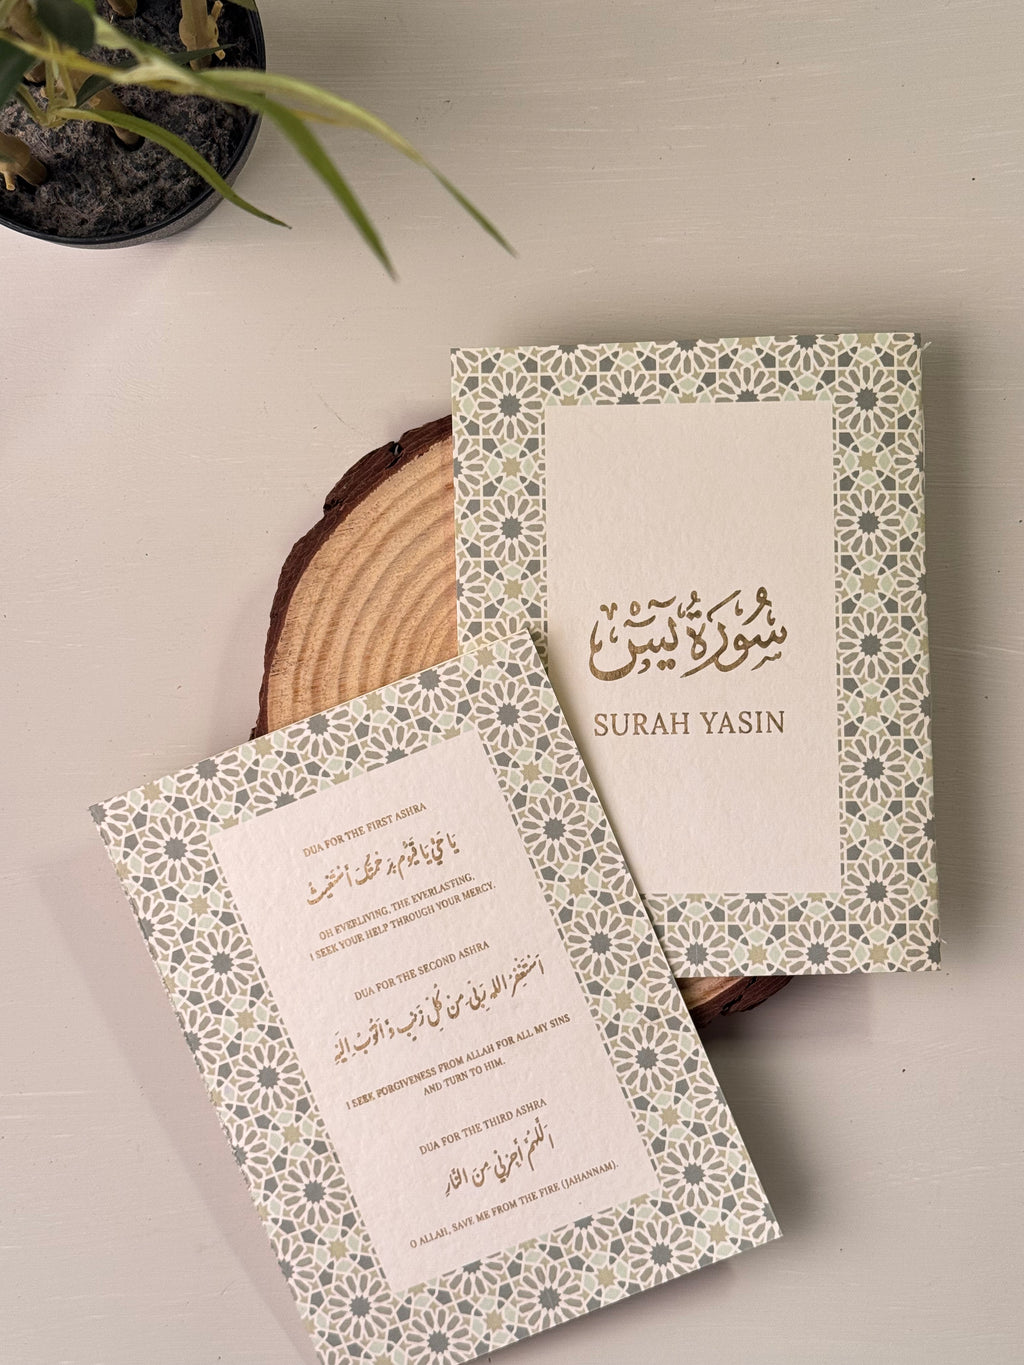 سُورَةُ يٓسٓ
SURAH YASIN
DUA FOR THE FIRST ASHRA
يَا حَيُّ يَا قَيُّوْمُ بِرَحْمَتِكَ أَسْتَغِيْثُ
OH EVERLIVING, THE EVERLASTING,
I SEEK YOUR HELP THROUGH YOUR MERCY.
DUA FOR THE SECOND ASHRA
اَسْتَغْفِرُ اللهِ رَبِّى مِنْ كُلِّ زَنْبٍ وَّ اَتُوْبُ اِلَيْهِ
I SEEK FORGIVENESS FROM ALLAH FOR ALL MY SINS
AND TURN TO HIM.
DUA FOR THE THIRD ASHRA
اَللَّهُمَّ أَجِرْنِي مِنَ النَّارِ
O ALLAH, SAVE ME FROM THE FIRE (JAHANNAM).